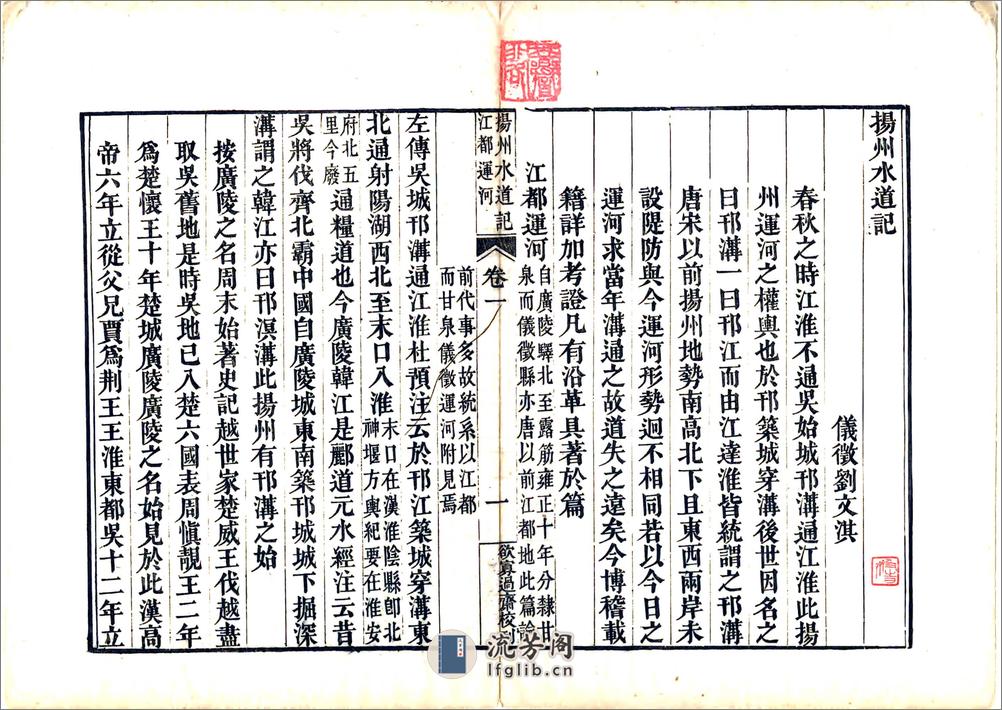 揚州水道記
儀徵劉文淇
春秋之時江淮不通吳始城邗溝通江淮此揚
州運河之權輿也於邗築城穿溝後世因名之
曰邗溝一曰邗江而由江達淮皆統謂之邗溝
唐宋以前揚州地勢南高北下且東西兩岸未
設隄防與今運河形勢迥不相同若以今日之
運河求當年溝通之故道失之遠矣今博稽載
籍詳加考證凡有沿革具著於篇
江都運河自廣陵驛北至露筋雍正十年分隸甘
泉而儀徵縣亦唐以前江都地此篇論
揚州水道記
江都運河
卷一
一
欲寡過齋校刊
前代事多故統系以江都
而甘泉儀徵運河附見焉
左傳吳城邗溝通江淮杜預注云於邗江築城穿溝東
北通射陽湖西北至末口入淮末口在漢淮陰縣卽北
神堰方輿紀要在淮安
府北五
里今廢通糧道也今廣陵韓江是酈道元水經注云昔
吳將伐齊北霸中國自廣陵城東南築邗城城下掘深
溝謂之韓江亦曰邗溟溝此揚州有邗溝之始
按廣陵之名周末始著史記越世家楚威王伐越盡
取吳舊地是時吳地已入楚六國表周愼靚王二年
爲楚懷王十年楚城廣陵廣陵之名始見於此漢高
帝六年立從父兄賈爲荆王王淮東都吳十二年立
流芳阁
lfglib.cn